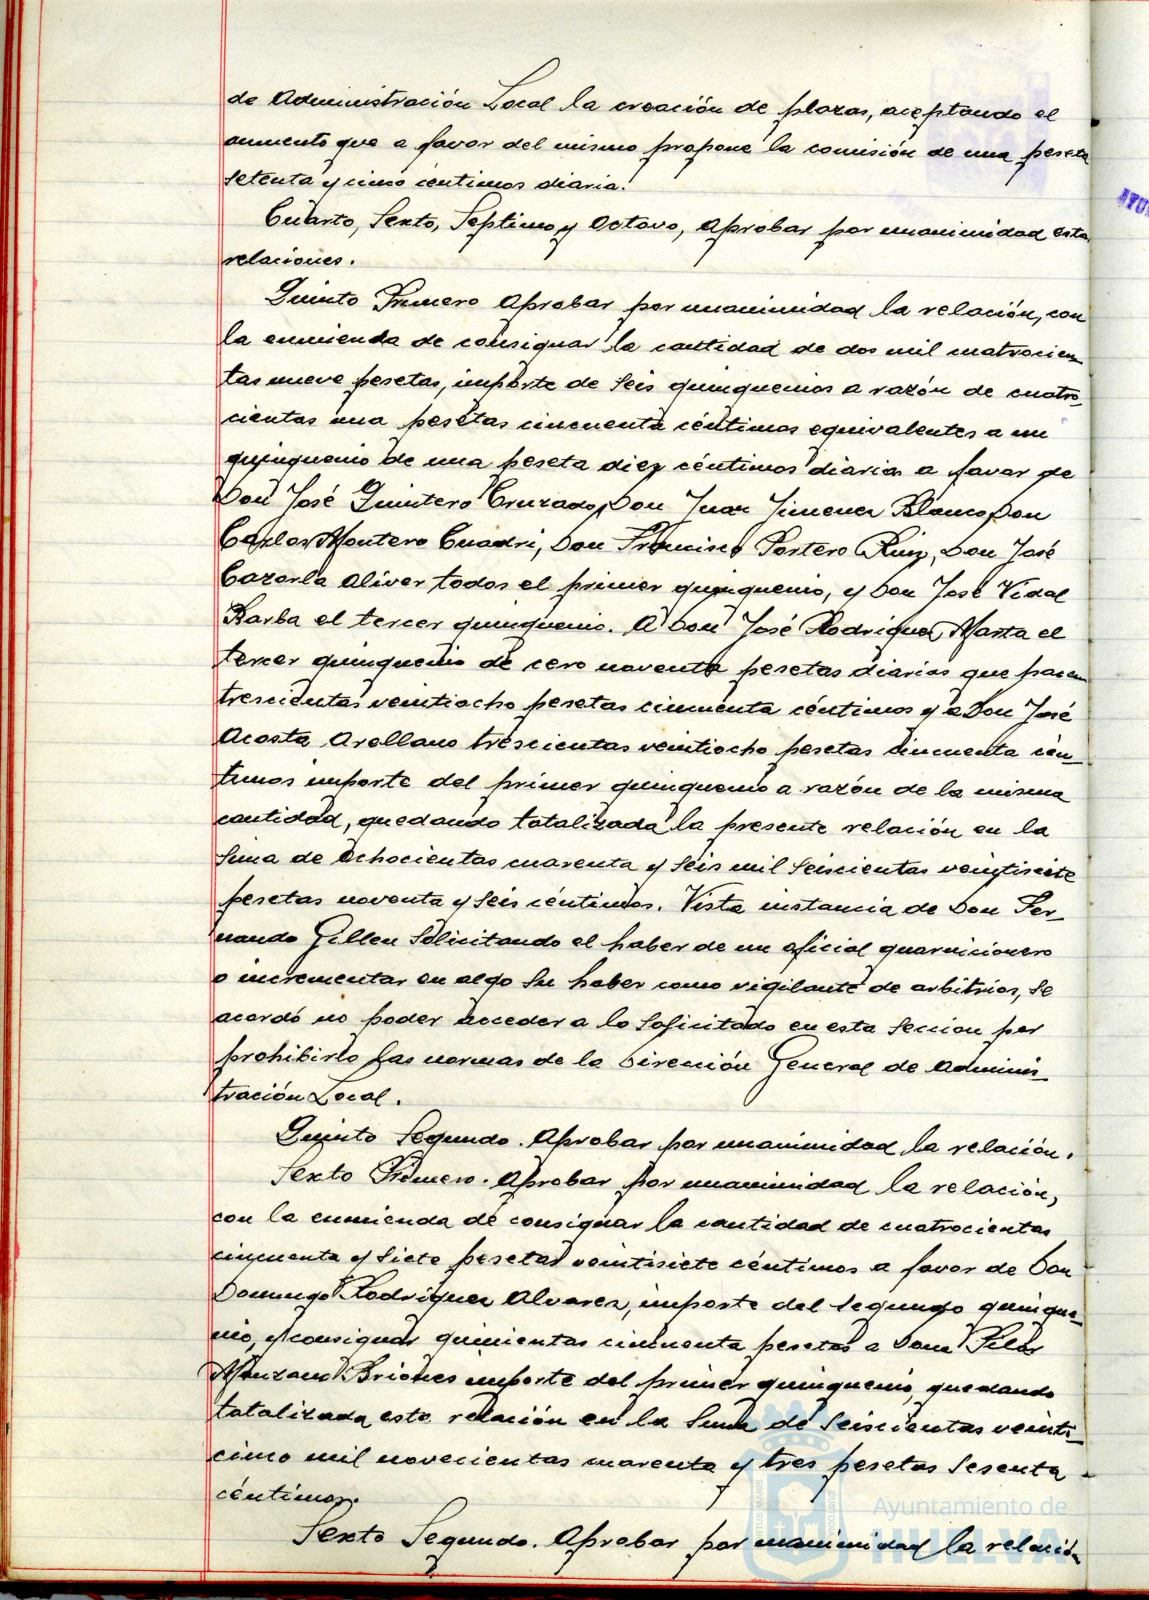 de Administración Local la creación de plazas, aceptando el
aumento que a favor del mismo propone la comisión de una peseta
setenta y cinco centimos diaria.
Cuarto, Sexto, Septimo y Octavo, Aprobar por unanimidad esta
relaciones.
Quinto Primero Aprobar por unanimidad la relación, con
la enmienda de consignar la cantidad de dos mil cuatrocien_
tas nueve pesetas, importe de seis quinquenios a razón de cuatro_
cientas una pesetas cincuenta céntimos equivalentes a un
quinquenio de una peseta diez céntimos diarios a favor de
Don José Quintero Cruzado, Don Juan Jimenez Blanco, Don
Carlos Montero Cuadri, Don Francisco Portero Ruiz, Don José
Cazorla Oliver todos el primer quinquenio, y Don José Vidal
Barba el tercer quinquenio. A Don José Rodriguez Marta el
tercer quinquenio de cero noventa pesetas diarias que hacen
trescientas veintiocho pesetas cincuenta céntimos y a Don José
Acosta Arellano trescientas veintiocho pesetas cincuenta cén_
timos importe del primer quinquenio a razón de la misma
cantidad, quedando totalizada la presente relación en la
suma de ochocientas cuarenta y seis mil seiscientas veintisiete
pesetas noventa y seis céntimos. Vista instancia de Don Fer_
nando Gillen solicitando el haber de un oficial guarnicionero
o incrementar en algo su haber como vigilante de arbitrios, se
acordó no poder acceder a lo solicitado en esta seccion por
prohibirlo las normas de la Dirección General de Adminis_
tración Local.
Quinto Segundo. Aprobar por unanimidad la relación.
Sexto Primero. Aprobar por unanimidad la relación,
con la enmienda de consignar la cantidad de cuatrocientas
cincuenta y siete pesetas veintisiete céntimos a favor de Don
Domingo Rodriguez Alvarez, importe del segundo quinque_
nio, y consignar quinientas cincuenta pesetas a Dona Pilar
Manzano Briones importe del primer quinquenio, quedando
totalizada esta relación en la suma de seiscientas veinti_
cinco mil novecientas cuarenta y tres pesetas sesenta
céntimos.
Sexto Segundo. Aprobar por unanimidad la relación
Ayuntamiento de
HUELVA